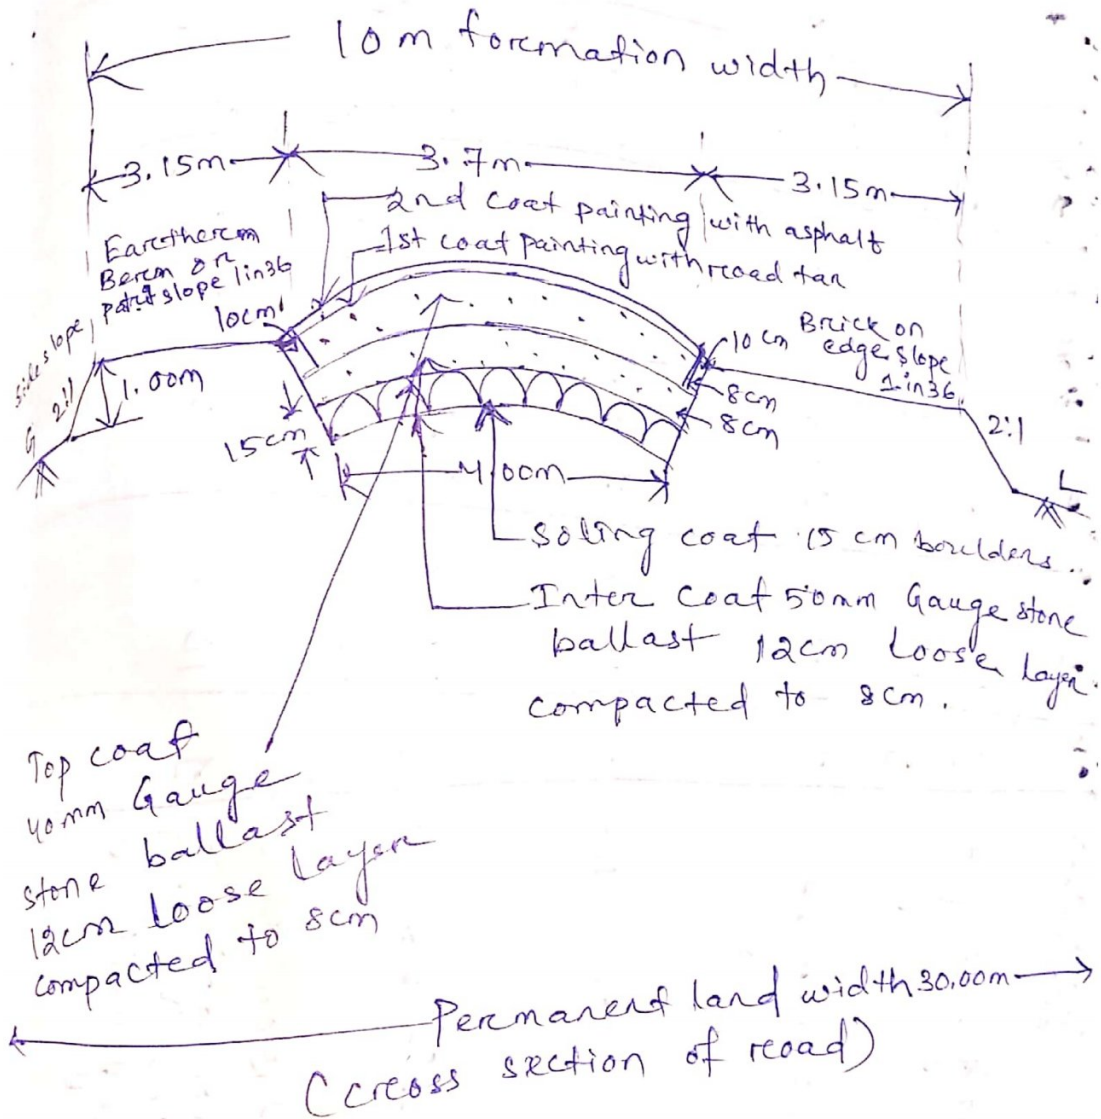 10m forcmation width
3.15m
3.7m
3.15m
2nd coat painting with asphalt
1st coat painting with rcoad tar
Earcthercm
Bercm or
slope 1in36
10cm
Side slope
2:1
G
1.00m
15cm
4.00m
10 cm
Brick on
edge slope
1 in 36
8cm
8cm
2:1
L
Soling coat 15 cm boulders
Inter coat 50mm Gauge stone
ballast 12cm loose layer
compacted to 8cm.
Top coat
40mm Gauge
stone ballast
12cm loose layer
compacted to 8cm
Percmanent land width 30.00m
(crcoss section of rcoad)